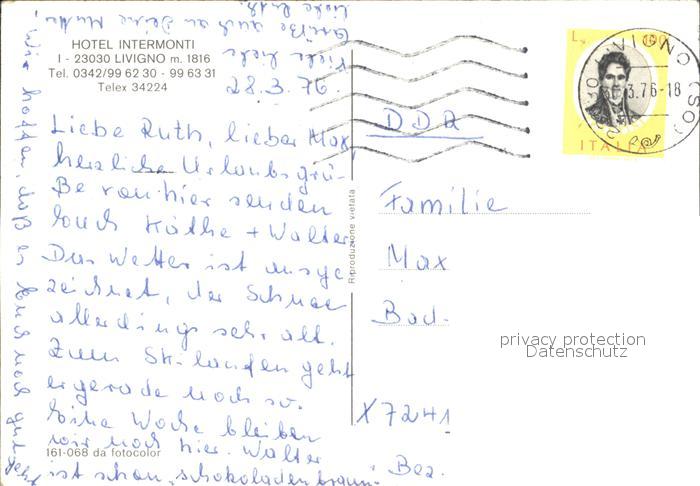 HOTEL INTERMONTI
I - 23030 LIVIGNO m. 1816
Tel. 0342/99 62 30 - 99 63 31
Telex 34224
28.3.76
Liebe Ruth, lieber Max,
herzliche Urlaubsgrü-
ße von hier senden
Euch Käthe + Walter
Das Wetter ist ausge
zeichnet, der Schnee
allerdings sehr alt.
Zum Skilaufen geht
er gerade noch so.
Eine Woche bleiben
wir noch hier. Walter
ist schon "schokoladenbraun"
Wir hoffen, daß es Euch noch gut geht
Viele liebe
Grüße auch an Deine Mutter,
liebe Ruth.
161-068 da fotocolor
Riproduzione vietata
L. 100
ITALIA
LIVIGNO
3.76-18
DDR
Familie
Max
Bad.
X7241
Bez.
privacy protection
Datenschutz